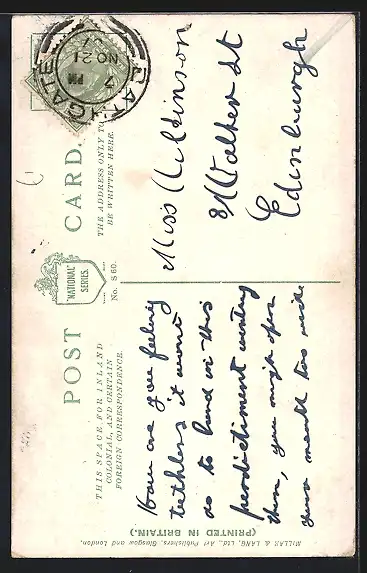 POST CARD.
"NATIONAL" SERIES.
No. S 60.
THIS SPACE FOR INLAND
COLONIAL, AND CERTAIN
FOREIGN CORRESPONDENCE.
THE ADDRESS ONLY TO
BE WRITTEN HERE.
BATHGATE
3 PM
NO 21
How are you feeling
tethless it wont
as to land in this
perdictiment writing
then, you might open
your mouth too wide
Miss Atkinson
8 Walker St
Edinburgh
MILLAR & LANG, Ltd., Art Publishers, Glasgow and London.
(PRINTED IN BRITAIN.)